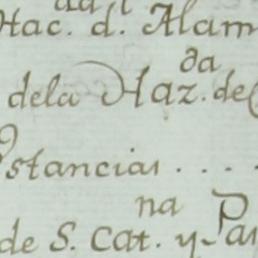 Hac. d. Alam
da
dela Haz. de
stancias . . . .
na
de S. Cat. y Par